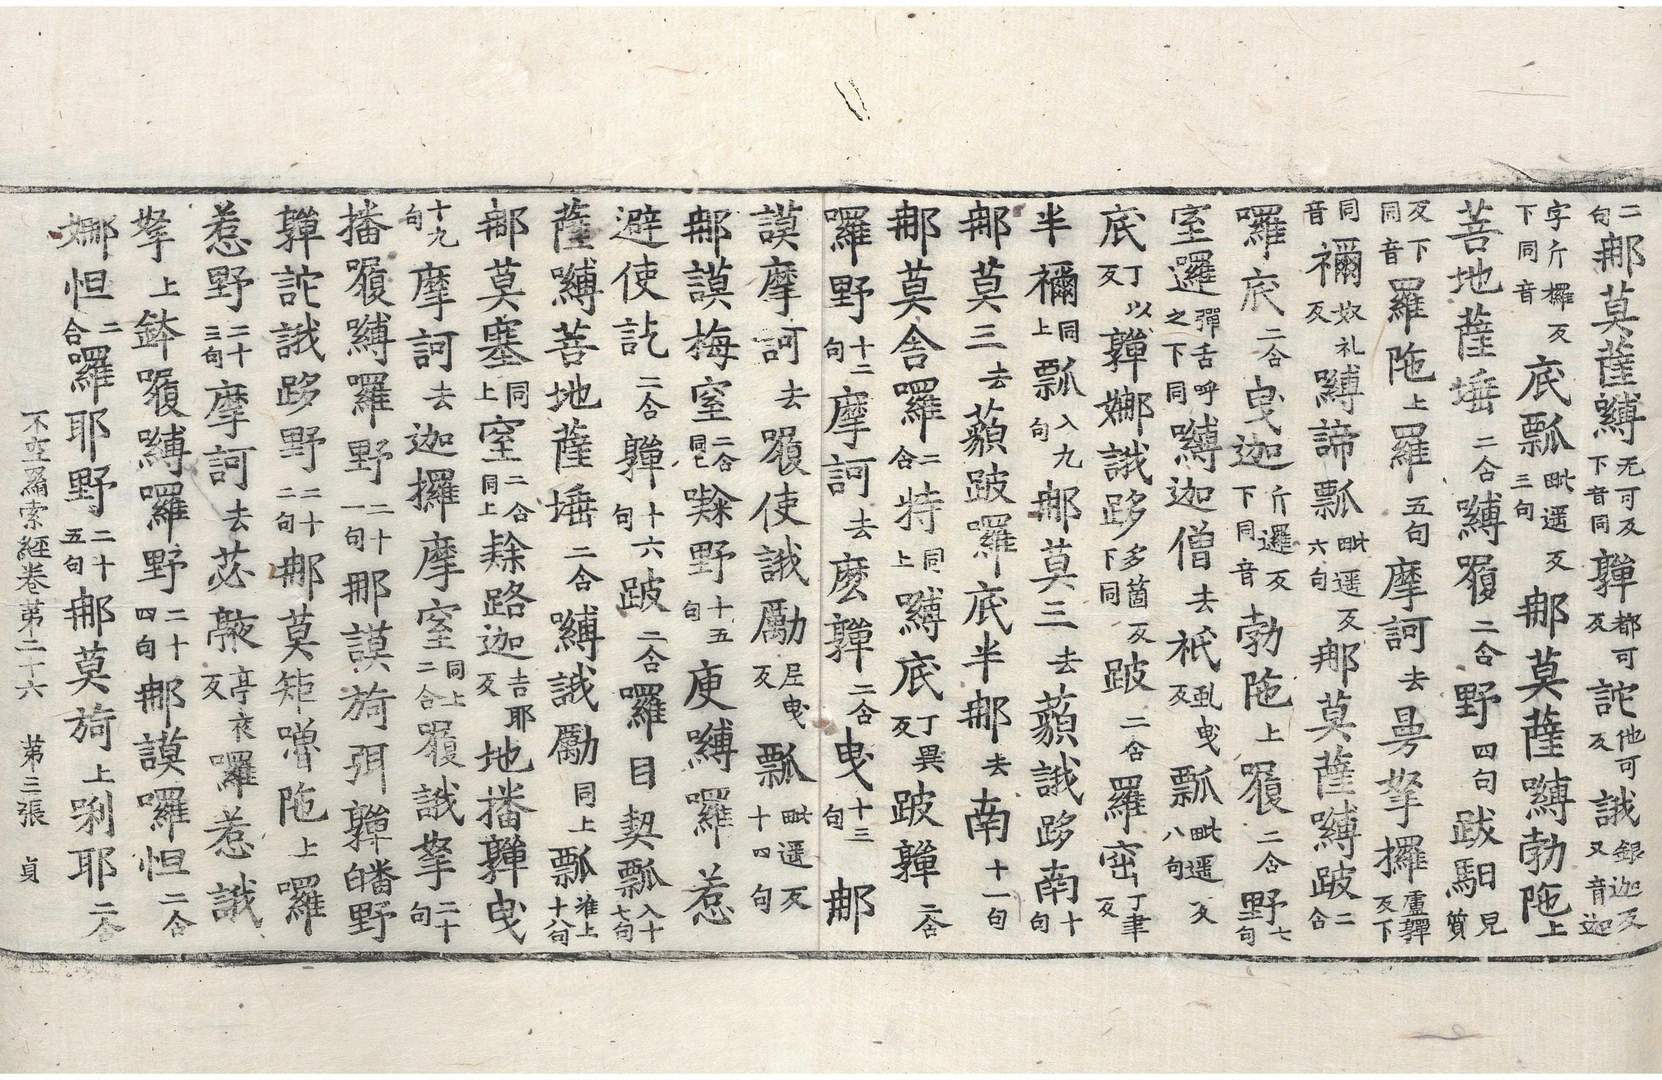 二句娜莫薩嚩无可反下音同嚲都可反詑他可反誐銀迦反又音迦
字斤攞反下同音底瓢毗遥反三句娜莫薩嚩勃陁上
菩地薩埵二合嚩履二合野四句跋馹見質
反下同音羅陁上羅五句摩訶去曼拏攞盧嚲反下
同音禰奴礼反嚩諦瓢毗遥反六句娜莫薩嚩跛二合
羅底二合曳迦斤邏反下同音勃陁上履二合野七句
室邏彈舌呼之下同嚩迦僧去祇虬曳反瓢毗遥反八句
底丁以反嚲娜誐跢多箇反下同跛二合羅窋丁聿反
半禰同上瓢入九句娜莫三去藐誐跢南十句
娜莫三去藐跛囉底半娜去南十一句
娜莫舍囉二合特同上嚩底丁異反跛嚲二合
囉野十二句摩訶去麼嚲二合曳十三句娜
謨摩訶去履使誐勵居曳反瓢毗遥反十四句
娜謨梅窒二合同上㘑野十五句庾嚩囉惹
避使訖二合嚲十六句跛二合囉目契瓢入十七句
薩嚩菩地薩埵二合嚩誐勵同上瓢准上十八句
娜莫塞同上窒二合同上㘑路迦吉耶反地播嚲曳
十九句摩訶去迦攞摩窒同上二合履誐拏二十句
播履嚩囉野二十一句那謨旖弭嚲皤野
嚲詑誐跢野二十二句娜莫矩嚕陁上囉
惹野二十三句摩訶去苾𭣧亭夜反囉惹誐
拏上鉢履嚩囉野二十四句娜謨囉怛二合
娜怛二合囉耶野二十五句娜莫旖上唎耶二合
不空羂索經卷第二十六　第三張　貞